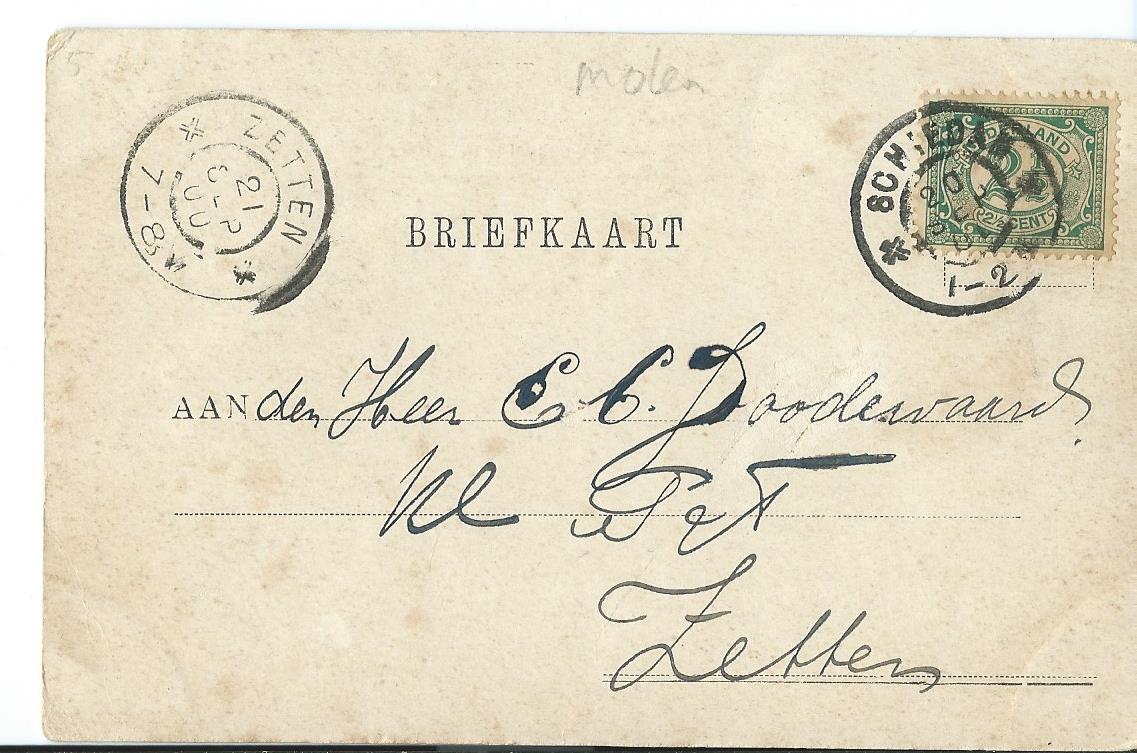 5
molen
ZETTEN
21
SEP
00
7-8N
SCHIEDAM
1-2N
NEDERLAND
2½
2½ CENT
BRIEFKAART
AAN den Heer E C. Doodewaard
Zetten